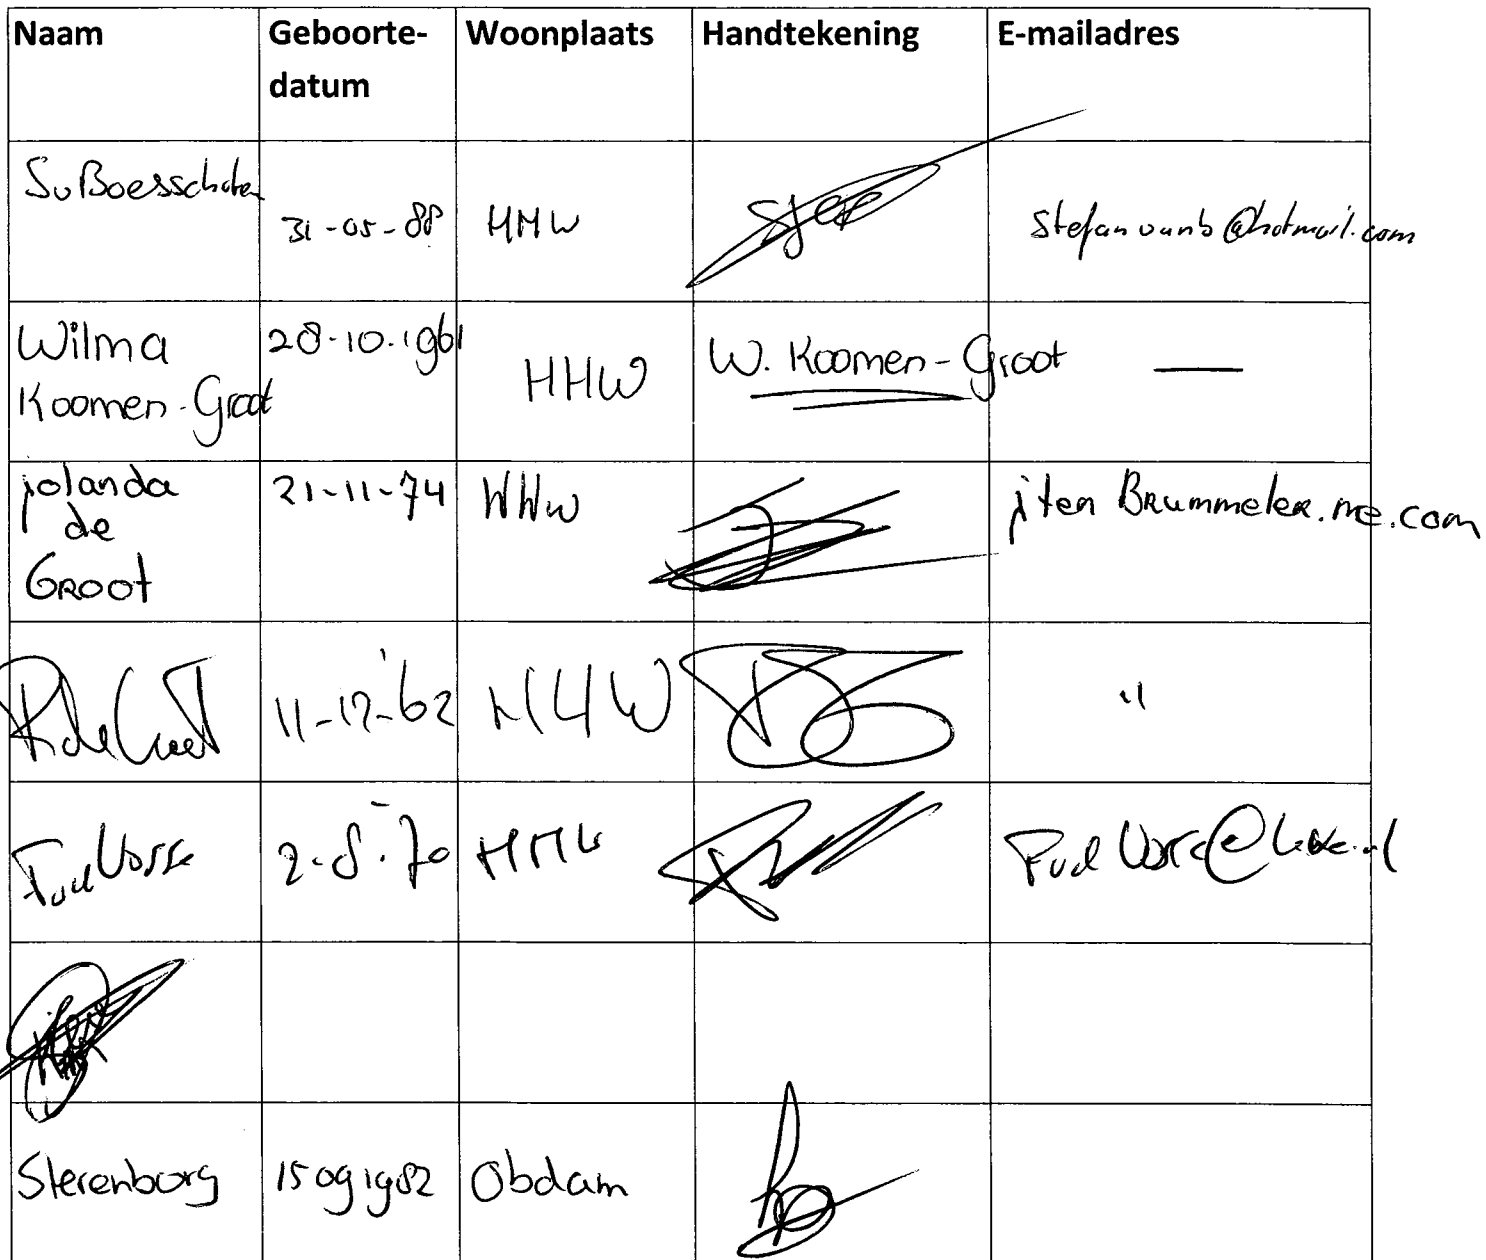 Naam Geboorte- Woonplaats Handtekening E-mailadres
datum
Sv Boesschoten
31-05-88 HHW stefanvanb@hotmail.com
Wilma 28-10-1961 HHW W. Koomen-Groot —
Koomen-Groot
jolanda 21-11-74 HHW jten Brummeler.me.com
de
Groot
R de Groot 11-12-'62 HHW "
2-8-70 HHW
Sterenborg 15 09 1982 Obdam